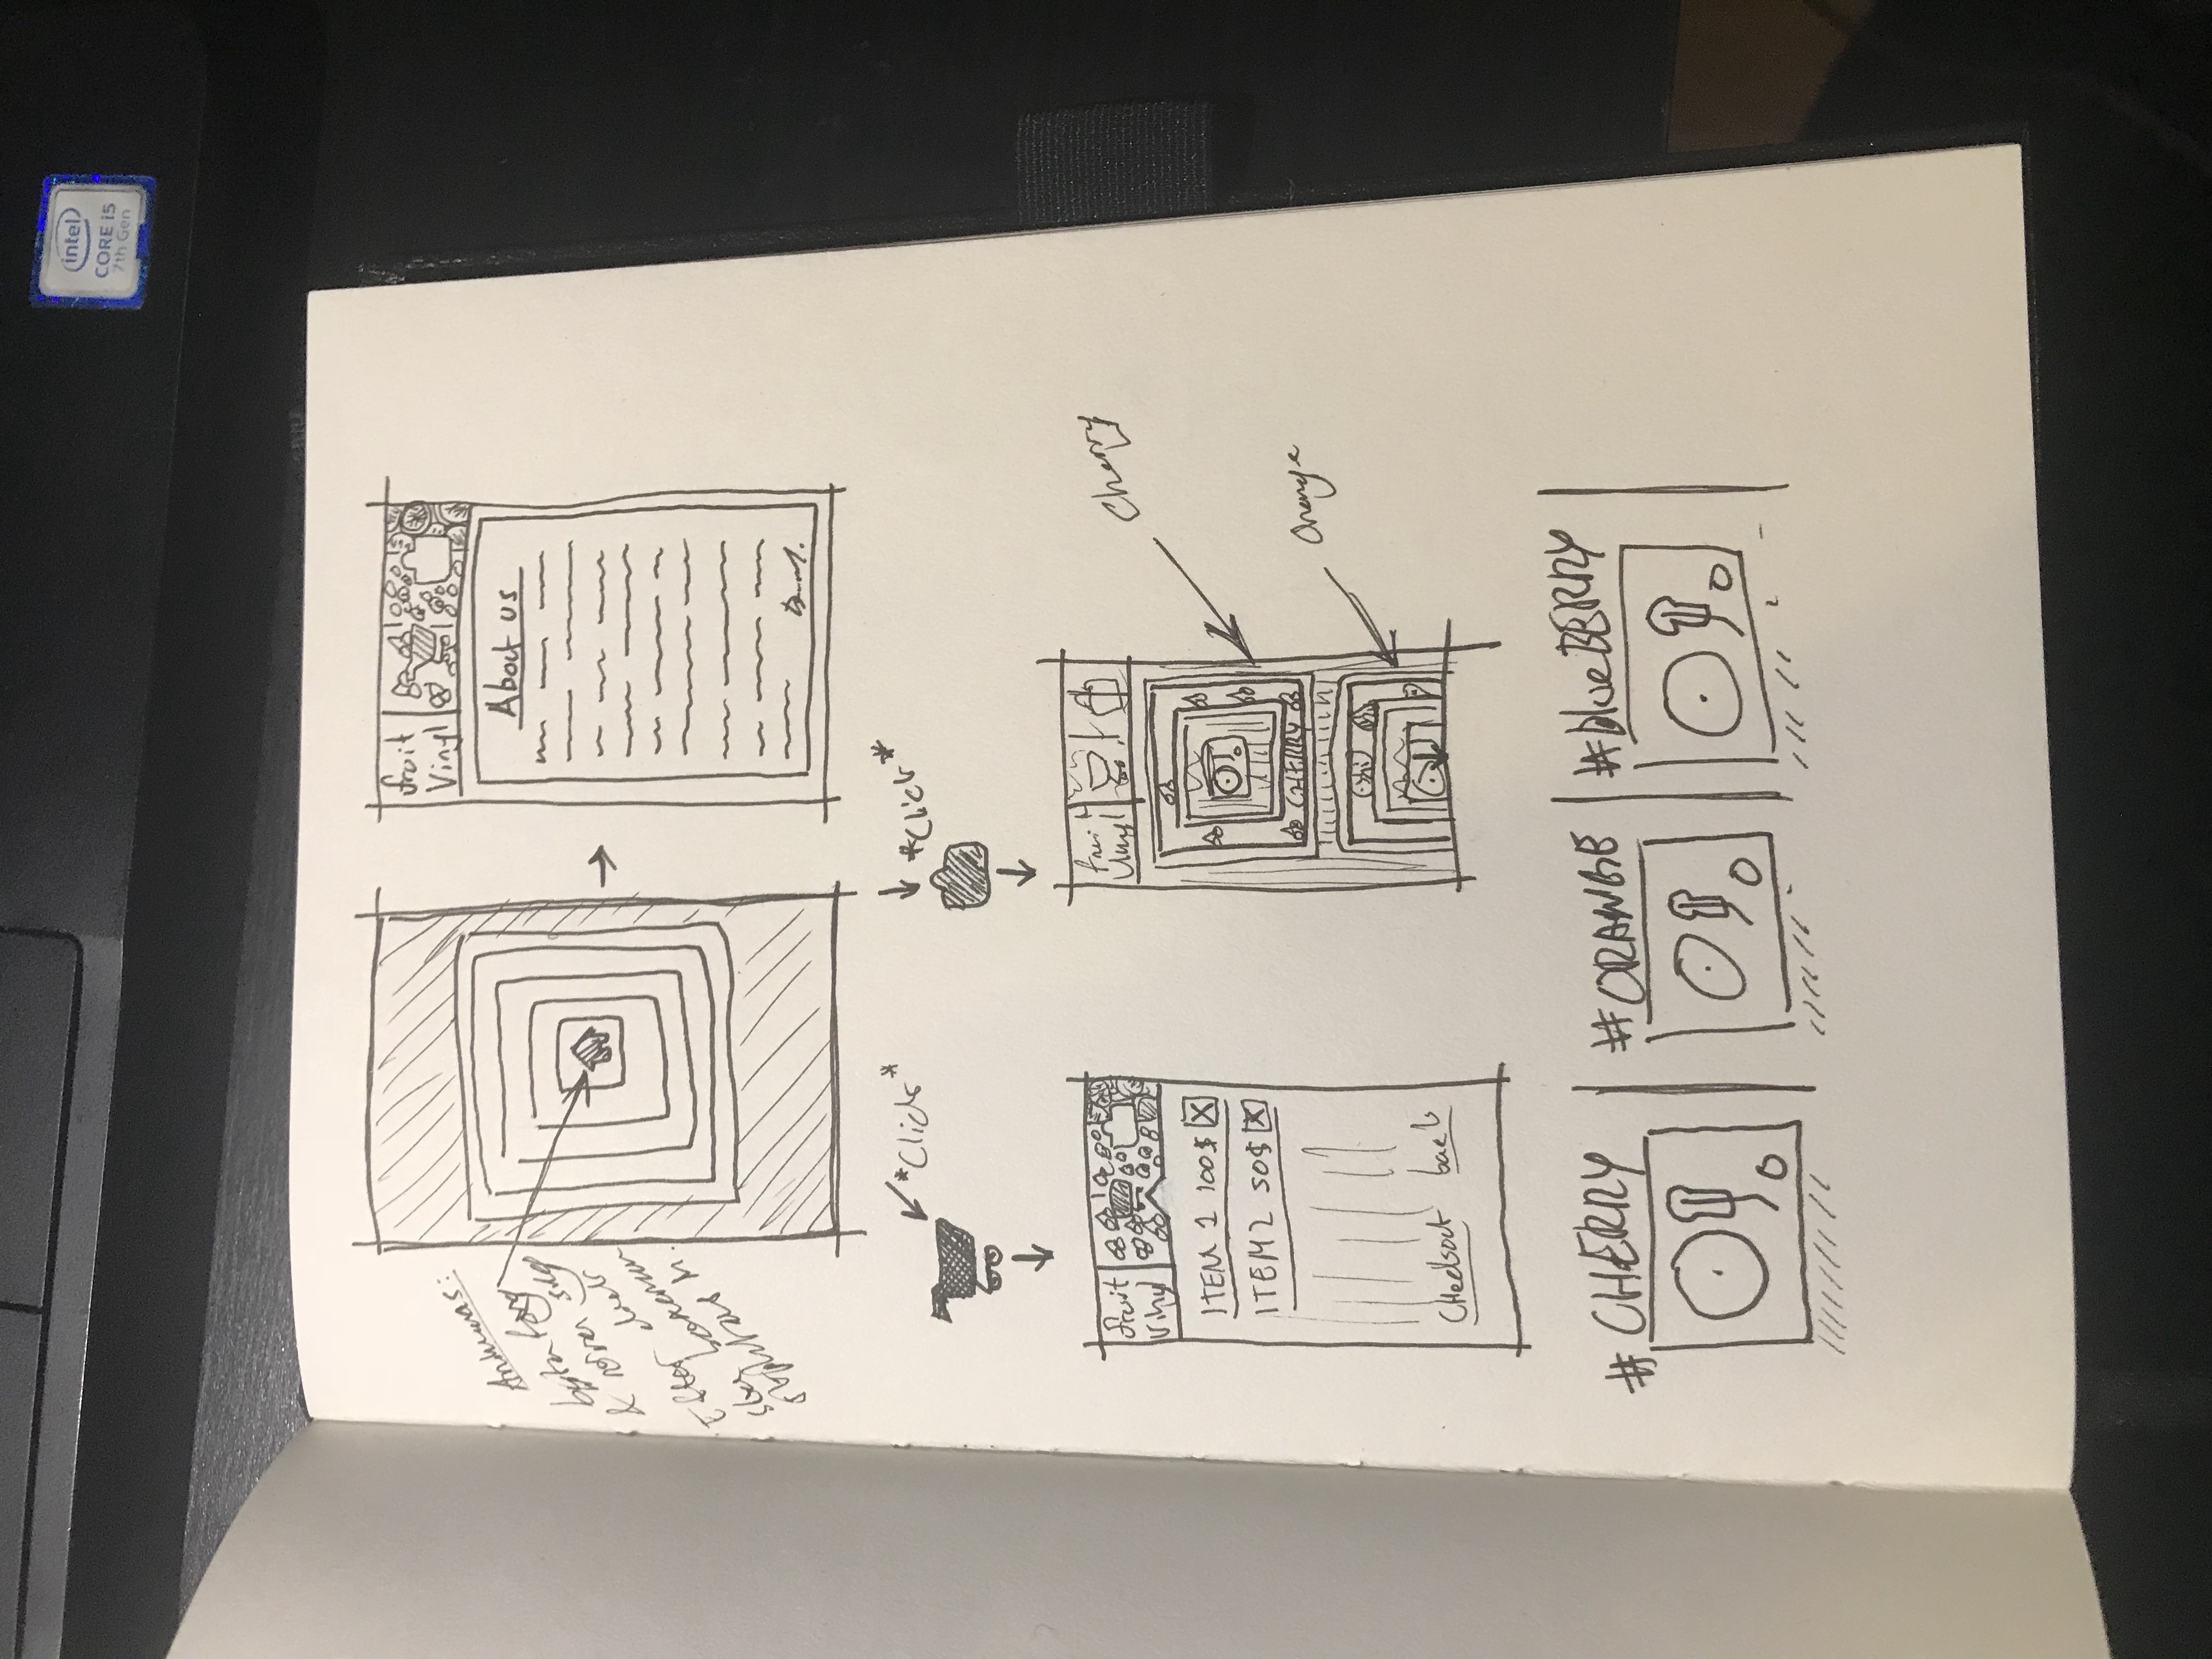 intel
CORE i5
7th Gen
fruit
Vinyl
Animeras:
byta färg
&
Efter
About us
*Click*
*Click*
fruit
Vinyl
ITEM 1 100$ X
ITEM 2 50$ X
Checkout back
fruit
Vinyl
CHERRY
Cherry
Orange
#CHERRY
#ORANGE
#blueBERRY